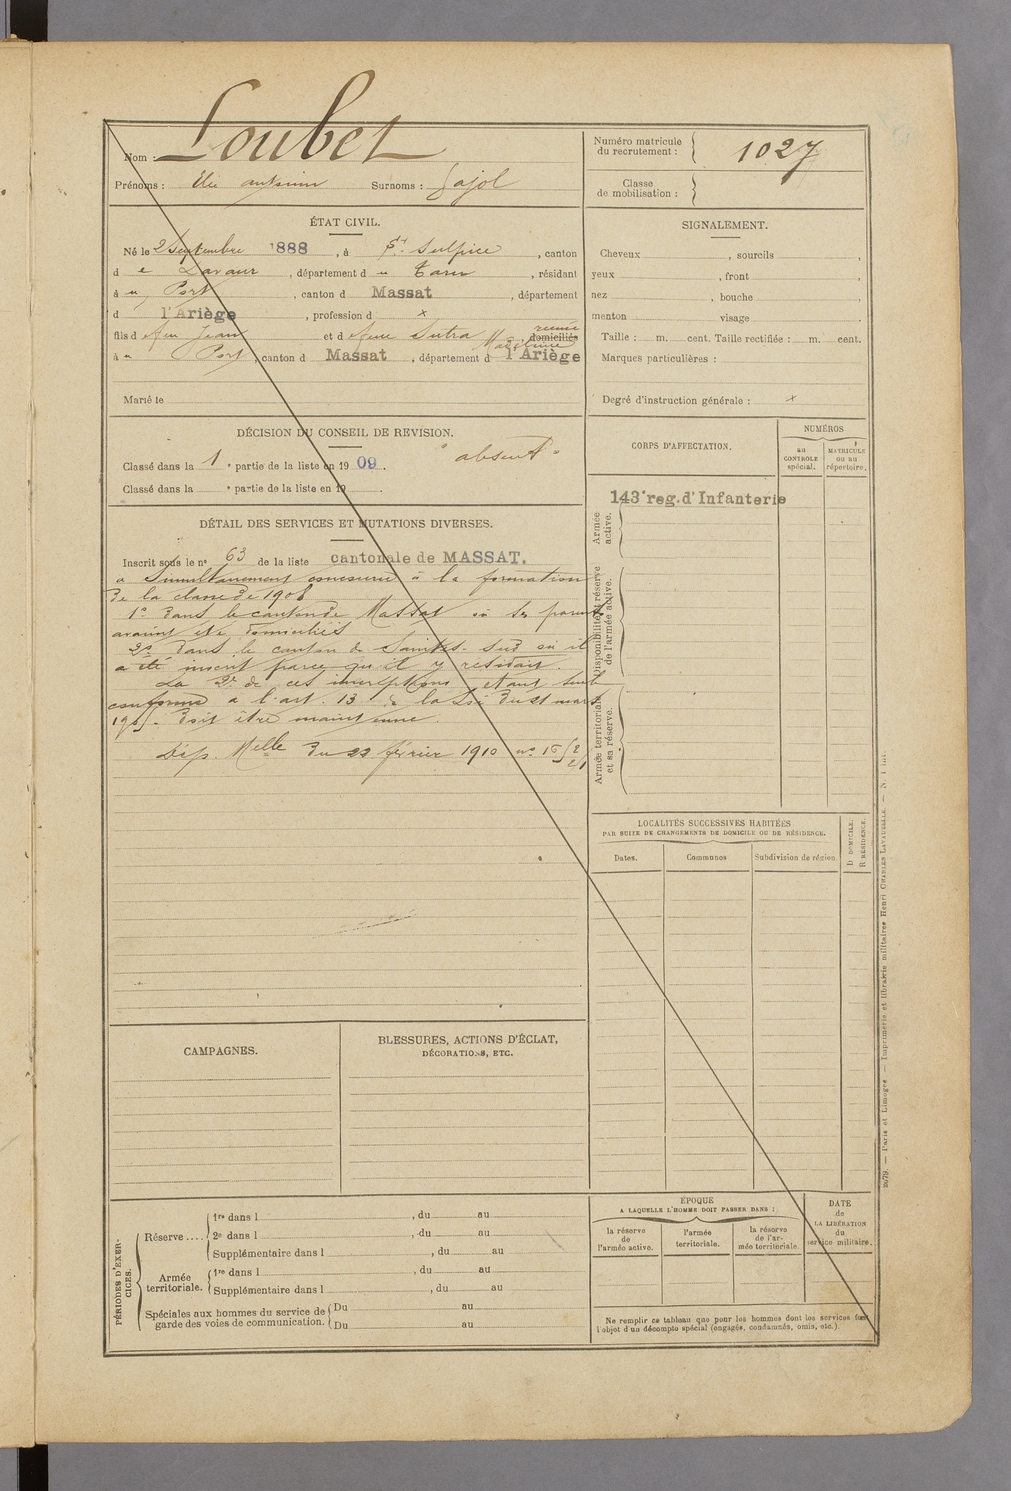 Nom : Loubet
Prénoms : Elie antonin Surnoms : Sajol
Numéro matricule
du recrutement : 1027
Classe
de mobilisation :
ÉTAT CIVIL.
Né le 2 Septembre 1888, à St. Sulpice, canton
d e Lavaur, département d u Tarn, résidant
à u Port, canton d Massat, département
d l'Ariège, profession d x
fils d e feu Jean et d e feue Sutra Magdelaine réunis domiciliés
à u Port, canton d Massat, département d l'Ariège
Marié le
SIGNALEMENT.
Cheveux , sourcils ,
yeux , front ,
nez , bouche ,
menton visage .
Taille : m. cent. Taille rectifiée : m. cent.
Marques particulières :
Degré d'instruction générale : x
DÉCISION DU CONSEIL DE REVISION.
Classé dans la 1 e partie de la liste en 1909. "absent"
Classé dans la e partie de la liste en 19 .
DÉTAIL DES SERVICES ET MUTATIONS DIVERSES.
Inscrit sous le no 63 de la liste cantonale de MASSAT.
a Simultanément concouru à la formation
de la classe de 1908
1o dans le canton de Massat où ses parents
avaient été domiciliés
2o dans le canton de Saintes-Sud où il
a été inscrit parce qu'il y résidait.
La 2e de ces inscriptions étant seule
conforme à l'art. 13 de la Loi du 21 mars
1905. doit être maintenue.
Dép. Melle du 22 février 1910 no 15 2/2/1
CORPS D'AFFECTATION.
NUMÉROS
au
CONTROLE
spécial.
MATRICULE
ou au
répertoire.
143e reg. d'Infanterie
Armée
active.
Disponibilité et réserve
de l'armée active.
Armée territoriale
et sa réserve.
LOCALITÉS SUCCESSIVES HABITÉES
PAR SUITE DE CHANGEMENTS DE DOMICILE OU DE RÉSIDENCE.
Dates.
Communes
Subdivision de région.
D DOMICILE.
R RÉSIDENCE.
CAMPAGNES.
BLESSURES, ACTIONS D'ÉCLAT,
DÉCORATIONS, ETC.
PÉRIODES D'EXER-
CICES.
Réserve ....
1re dans l , du au
2e dans l , du au
Supplémentaire dans l , du au
Armée
territoriale.
1re dans l , du au
Supplémentaire dans l , du au
Spéciales aux hommes du service de
garde des voies de communication.
Du au
Du au
ÉPOQUE
A LAQUELLE L'HOMME DOIT PASSER DANS :
la réserve
de
l'armée active.
l'armée
territoriale.
la réserve
de l'ar-
mée territoriale
DATE
de
LA LIBÉRATION
du
service militaire.
Ne remplir ce tableau que pour les hommes dont les services font
l'objet d'un décompte spécial (engagés, condamnés, omis, etc.).
Paris et Limoges. — Imprimerie et librairie militaires Henri CHARLES-LAVAUZELLE.